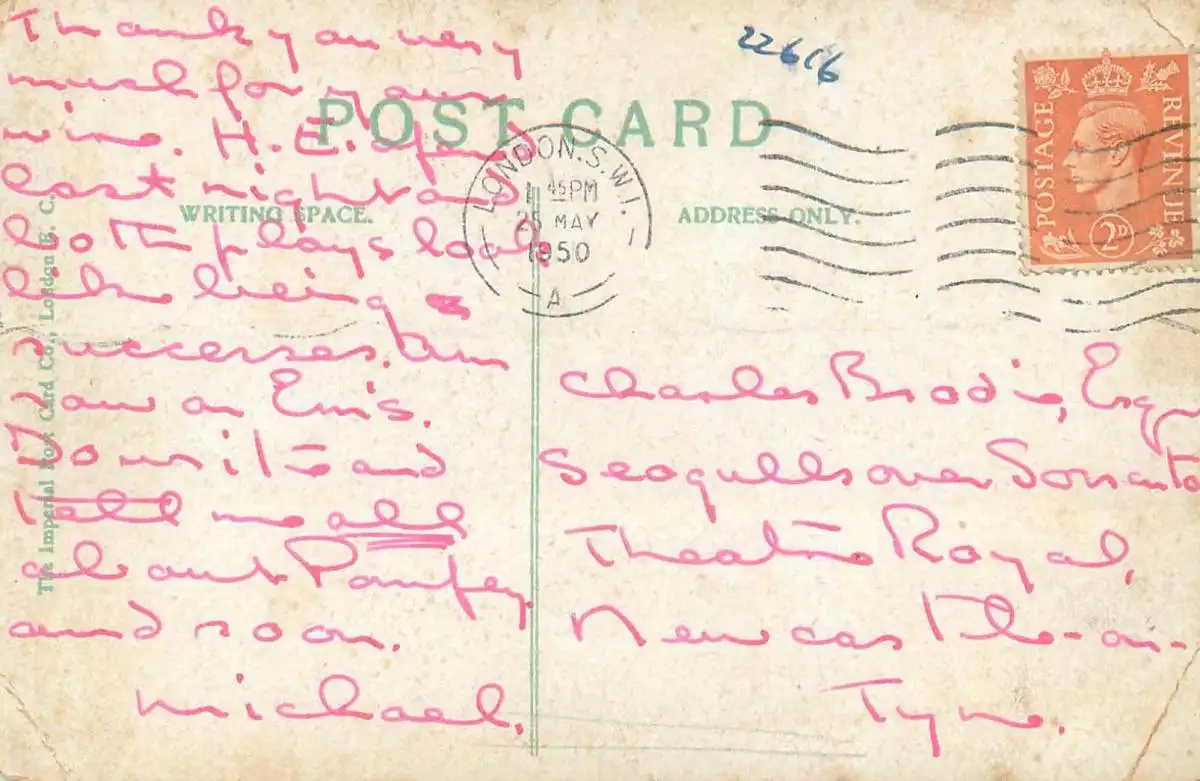 22616
POST CARD
WRITING SPACE.
ADDRESS ONLY.
The Imperial Post Card Co., London E. C.
LONDON. S.W.1.
45 PM
25 MAY
1950
A
POSTAGE
REVENUE
2D
Thank you very
much for your
wire. H. E.
last night and
both plays look
like being
successes. Am
now on
Do write and
tell me all
about Pompey
and soon.
Michael.
Charles Brodie, Esq
Seagulls over Sorrento
Theatre Royal,
Newcastle-on-
Tyne.